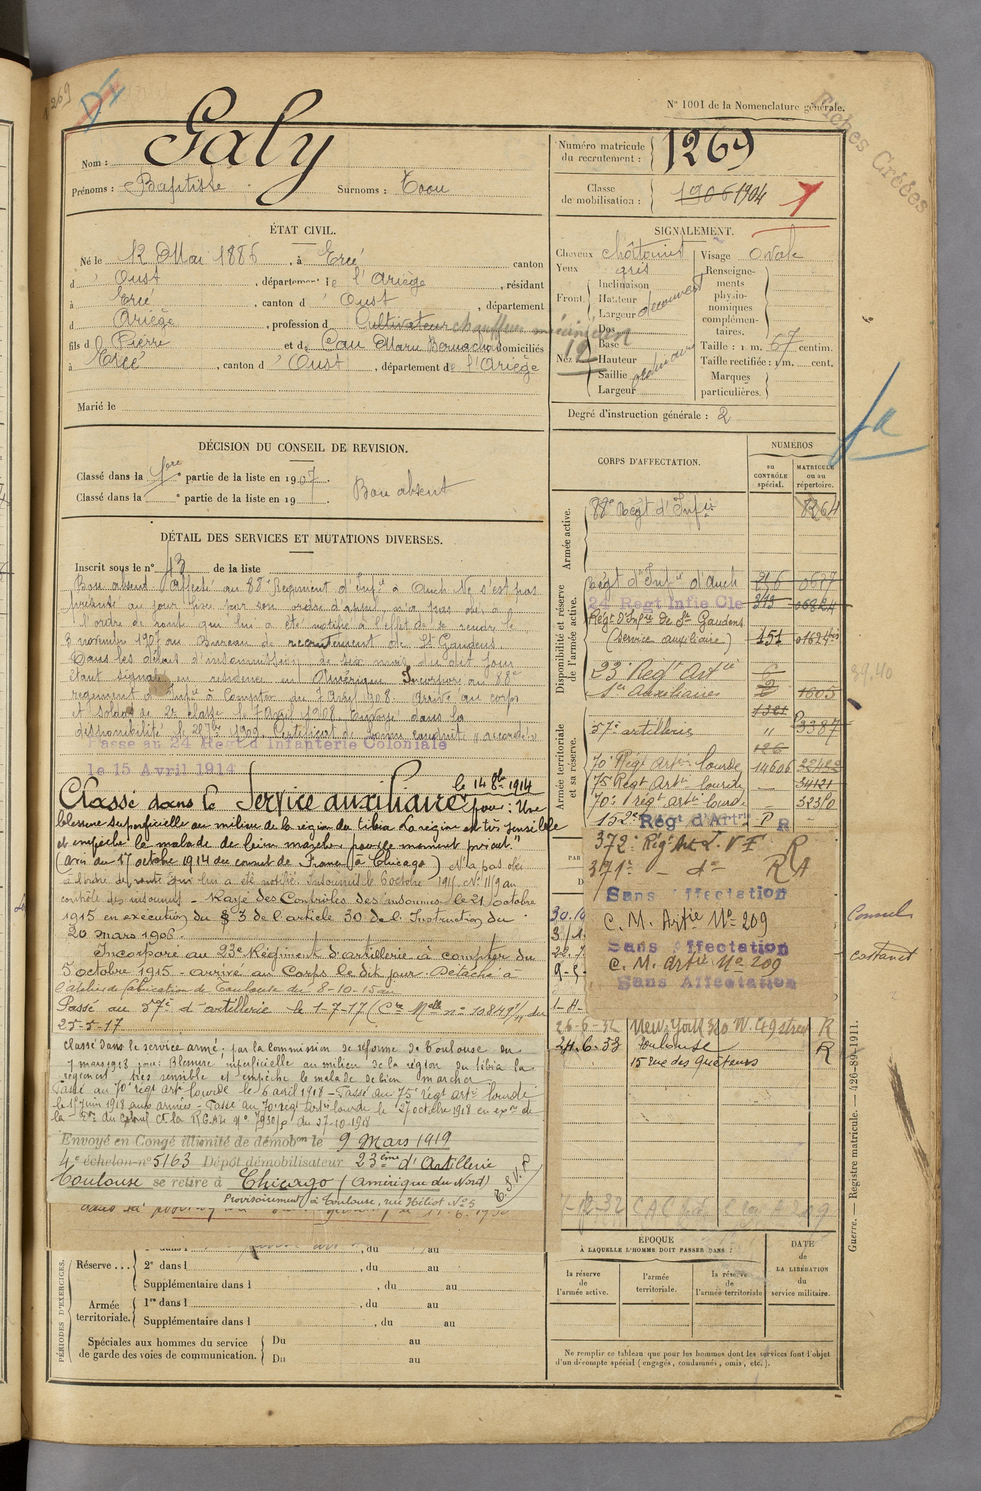 N° 1001 de la Nomenclature générale.
Fiches Créées
269
Nom : Galy
Prénoms : Baptiste Surnoms : Toou
Numéro matricule du recrutement : 1269
Classe de mobilisation : 1906 1904
1
ÉTAT CIVIL.
Né le 12 Mai 1886, à Ercé canton
d' Oust, département de l'Ariège, résidant
à Ercé, canton d' Oust, département
d Ariège, profession d Cultivateur chauffeur mécanicien
fils d Pierre et de Cau Marie Bernarda domiciliés
à Ercé, canton d' Oust, département de l'Ariège
Marié le
12
SIGNALEMENT.
Cheveux châtains Visage Ovale
Yeux gris
Front Inclinaison
Hauteur
Largeur
Nez Dos
Base
Hauteur
Saillie
Largeur
Renseignements physionomiques complémentaires.
Taille : 1 m. 67 centim.
Taille rectifiée : 1 m. cent.
Marques particulières.
Degré d'instruction générale : 2
DÉCISION DU CONSEIL DE REVISION.
Classé dans la 1ère partie de la liste en 1907. Bon absent
Classé dans la e partie de la liste en 19
DÉTAIL DES SERVICES ET MUTATIONS DIVERSES.
Inscrit sous le n° 43 de la liste
Bon absent. Affecté au 88e Régiment d'Infie à Auch. Ne s'est pas
présenté au jour fixé par son ordre d'appel, n'a pas obéi à
l'ordre de route qui lui a été notifié à l'effet de se rendre le
3 novembre 1907 au Bureau de recrutement de St Gaudens.
Dans les délais d'insoumission de six mois du dit jour
étant signalé en résidence en Amérique. Incorporé au 88e
régiment d'Infie à compter du 7 Avril 1908. Arrivé au corps
et soldat de 2e classe le 7 Avril 1908. Envoyé dans la
disponibilité le 28 7bre 1909. Certificat de bonne conduite accordé.
Passé au 24 Régt d'Infanterie Coloniale
le 15 Avril 1914
le 14 8bre 1914
Classé dans le Service auxiliaire pour : Une
blessure superficielle au milieu de la région du tibia. La région est très sensible
et empêche le malade de bien marcher pour le moment présent."
(avis du 17 octobre 1914 du consul de France à Chicago) N'a pas obéi
à l'ordre de route qui lui a été notifié. Insoumis le 6 octobre 1915. N° 1159 au
contrôle des insoumis. - Rayé des Contrôles des insoumis le 21 octobre
1915 en exécution du § 3 de l'article 30 de l'Instruction du
30 mars 1906.
Incorporé au 23e Régiment d'artillerie à compter du
5 octobre 1915 - arrivé au Corps le dit jour. Détaché à
l'atelier de fabrication de Toulouse du 8-10-15 au
Passé au 57e d'artillerie le 1-7-17 (Cre Melle n° 10849 1/11 du
25-5-17
Classé dans le service armé, par la commission de réforme de Toulouse du
7 mars 1918 pour : Blessure superficielle au milieu de la région du tibia la
région est très sensible et empêche le malade de bien marcher.
Passé au 70e régt artie lourde le 6 avril 1918 - Passé au 75e régt artie lourde
le 1er Juin 1918 aux armées - Passé au 70e régt Artie lourde le 27 octobre 1918 en exon de
la du Général Ct la R.G.A.L. n° 7930/p du 27-10-1918
Envoyé en Congé illimité de démobon le 9 Mars 1919
4e échelon n° 5163 Dépôt démobilisateur 23ème d'Artillerie
Toulouse se retire à Chicago (Amérique du Nord)
Provisoirement à Toulouse, rue Héliot N° 5
T.S.V.P
CORPS D'AFFECTATION.
NUMÉROS
au CONTRÔLE spécial.
MATRICULE ou au répertoire.
Armée active.
88e Régt d'Infie 1264
Disponibilité et réserve de l'armée active.
Régt d'Infie d'Auch 256 0687
24 Régt Infie Cle 313 00824
Régt d'Infie de St Gaudens
(Service auxiliaire) 151 01624
23e Régt Artie
Son Auxiliaires 1605
Armée territoriale et sa réserve.
1301
57e artillerie " 3387
126
70e Régt Artie lourde 14606 22422
75 Régt Artie lourde — 34121
70e régt artie lourde — 5230
152e Régt d'Artie P R
372e Régt Art L.V.F R
371e — de — RA
Sans Affectation
C. M. Artie N° 209
Sans Affectation
C. M. Artie N° 209
Sans Affectation
39.40
fa
Consul
Castanet
26-6-32 New York 340 W. 49 street R
24.6.33 Toulouse R
15 rue des Quêteurs
7-12-32 C A C
ÉPOQUE
À LAQUELLE L'HOMME DOIT PASSER DANS :
la réserve de l'armée active.
l'armée territoriale.
la réserve de l'armée territoriale
DATE de LA LIBÉRATION du service militaire.
Ne remplir ce tableau que pour les hommes dont les services font l'objet
d'un décompte spécial (engagés, condamnés, omis, etc.).
PÉRIODES D'EXERCICES.
Réserve ... 2e dans l , du au
Supplémentaire dans l , du au
Armée territoriale. 1re dans l , du au
Supplémentaire dans l , du au
Spéciales aux hommes du service
de garde des voies de communication. Du au
Du au
Guerre. — Registre matricule. — 426-89-1911.